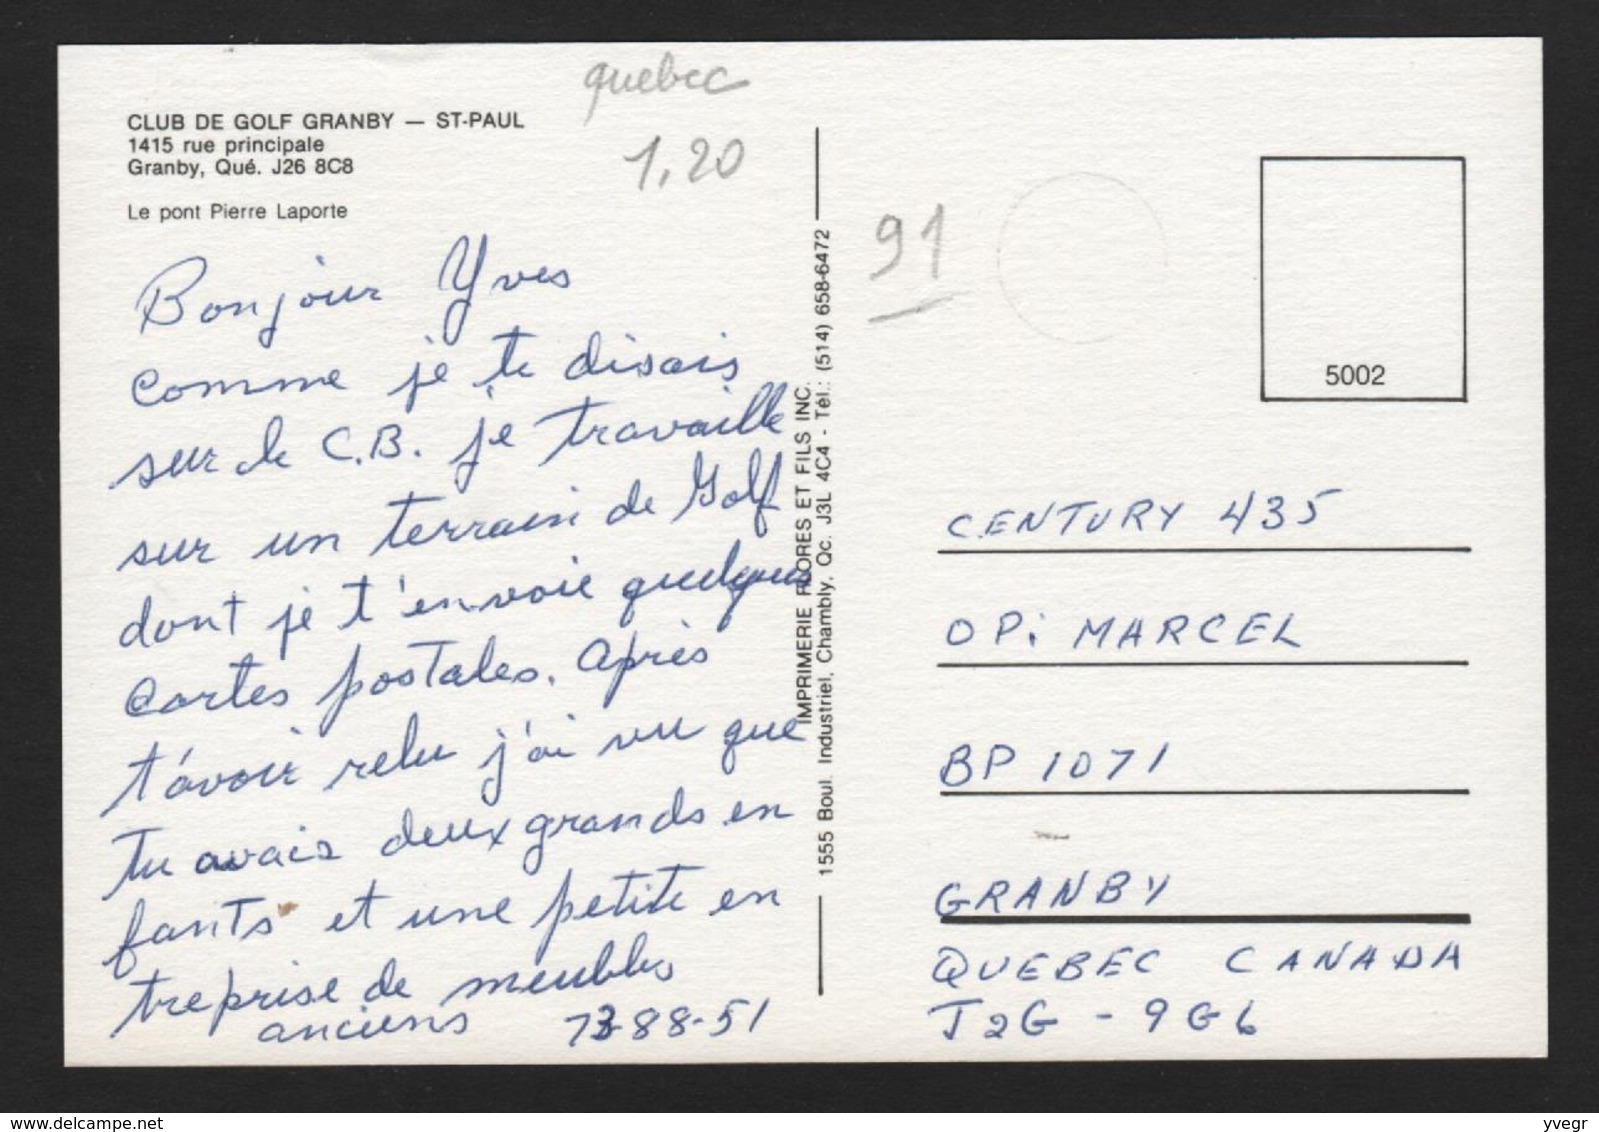 quebec
1,20
CLUB DE GOLF GRANBY — ST-PAUL
1415 rue principale
Granby, Qué. J26 8C8
Le pont Pierre Laporte
Bonjour Yves
comme je te disais
sur le C.B. je travaille
sur un terrain de Golf
dont je t'envoie quelques
cartes postales. Après
t'avoir relu j'ai vu que
tu avais deux grands en
fants et une petite en
treprise de meubles
anciens 73-88-51
IMPRIMERIE FLORES ET FILS INC.
1555 Boul. Industriel, Chambly, Qc. J3L 4C4 - Tél.: (514) 658-6472
91
5002
CENTURY 435
OPi MARCEL
BP 1071
GRANBY
QUEBEC CANADA
J2G - 9G6
www.delcampe.net
yvegr